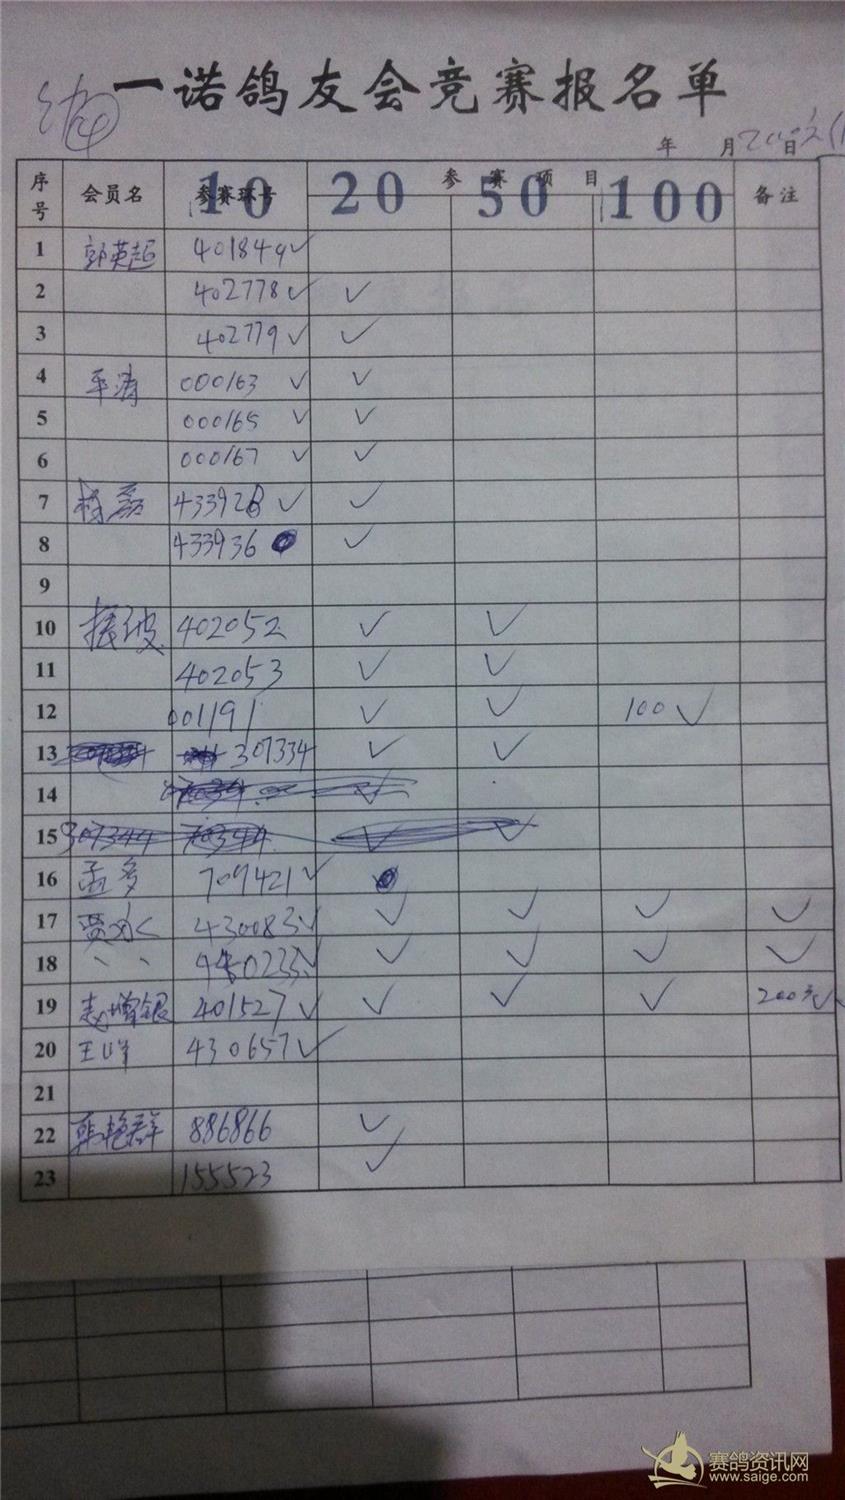 一诺鸽友会竞赛报名单
年 月 日
序号 会员名 参赛环号 参赛项目 备注
10 20 50 100
1 郭英超 401849✓
2 402778✓ ✓
3 402779✓ ✓
4 平涛 000163 ✓ ✓
5 000165 ✓ ✓
6 000167 ✓ ✓
7 杨磊 433928 ✓ ✓
8 433936 ✓
9
10 402052 ✓ ✓
11 402053 ✓ ✓
12 001191 ✓ ✓ 100 ✓
13 307334 ✓ ✓
14
15 307344 70344
16 孟多 709421✓
17 430083✓ ✓ ✓ ✓ ✓
18 、、 ✓ ✓ ✓ ✓
19 赵增银 401527✓ ✓ ✓ ✓ 200元✓
20 430657✓
21
22 韩艳群 886866 ✓
23 155523 ✓
赛鸽资讯网
www.saige.com